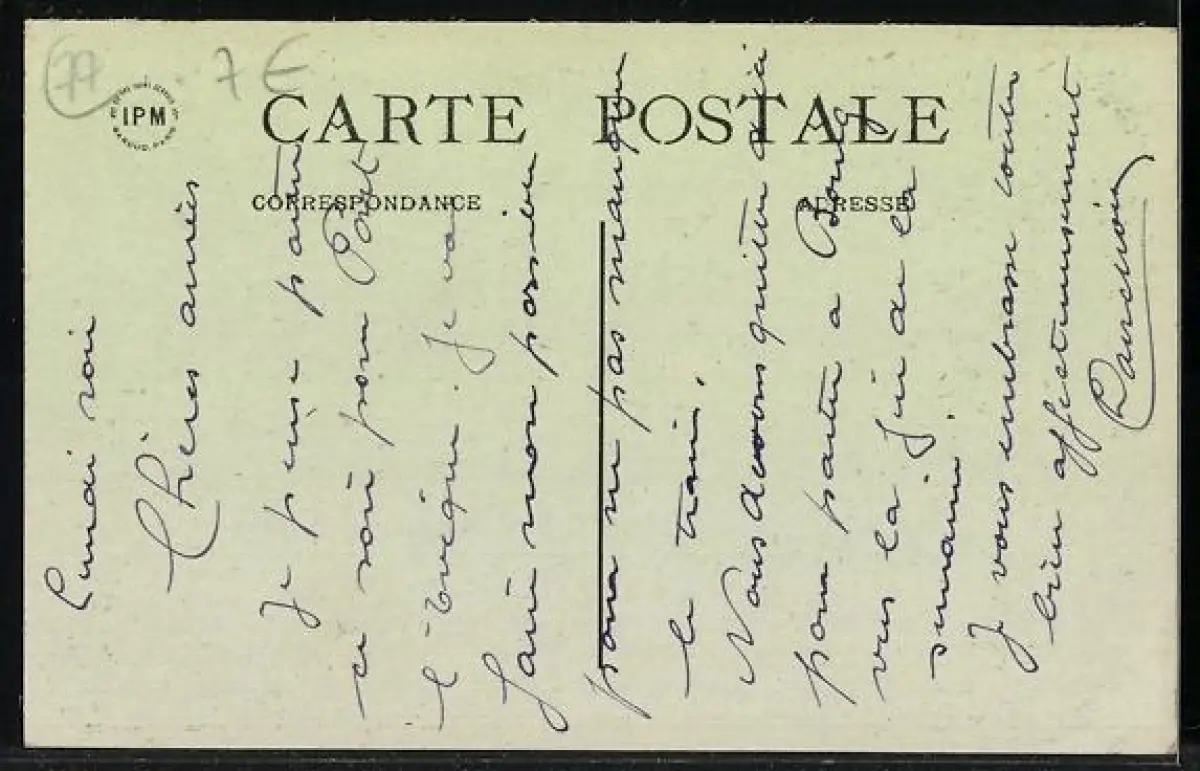 77
7 €
IPM
CARTE POSTALE
CORRESPONDANCE
ADRESSE
Lundi soir
Chères amies
Je pense partir
ce soir pour Pont
l'Evêque. Je vais
faire mon possible
pour ne pas manquer
le train.
Nous devons quitter
pour partir a
vers la fin de la
semaine.
Je vous embrasse toutes
bien affectueusement